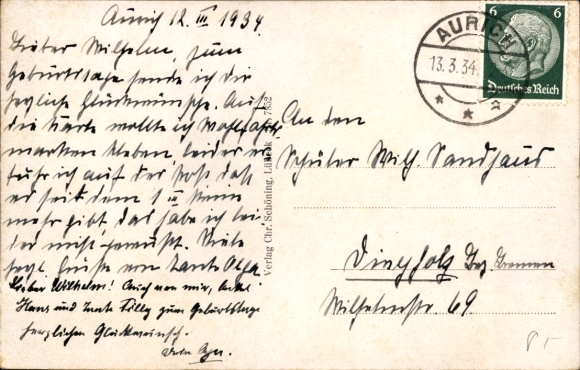 Aurich 12. III 1934.
Lieber Wilhelm, zum
Geburtstage sende ich dir
herzliche Glückwünsche. Auf
die Karte wollte ich Wohlfahrts
marken kleben leider er
fuhr ich auf der Post daß
es seit dem 1 III keine
mehr gibt das habe ich lei
der nicht gewußt. Viele
herzl. Grüße von Tante Olga.
Lieber Wilhelm! Auch von mir,
Hans und Tante Tilly zum Geburtstage
herzlichen Glückwunsch.
Verlag Chr. Schöning, Lübeck 7852
AURICH
13.3.34.
6 6
Deutsches Reich
An den
Schüler Wilh. Sandhaus
Dinkholz Bez. Bremen
Wilhelmstr 69
8,-